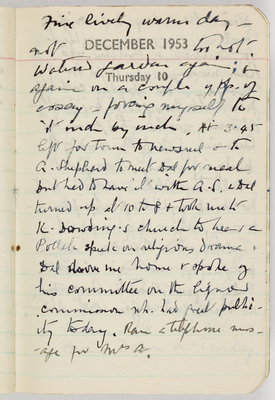 Fine lively warm day –
not too hot.
DECEMBER 1953
Thursday 10
Watered garden again; &
again on a couple of pp. of
essay – forcing myself to
it inch by inch. At 3.45
left for town to newsreel & to
A. Shepherd to meet Dal for meal
but had to have it with A.S. & Dal
turned up at 10 to 8 & took me to
K. Dowding's church to hear a
speak on religious drama.
Dal drove me home & spoke of
his committee on the liquor
commission wh. had great public-
ity today. Ran a telephone mes-
sage for Mrs A.